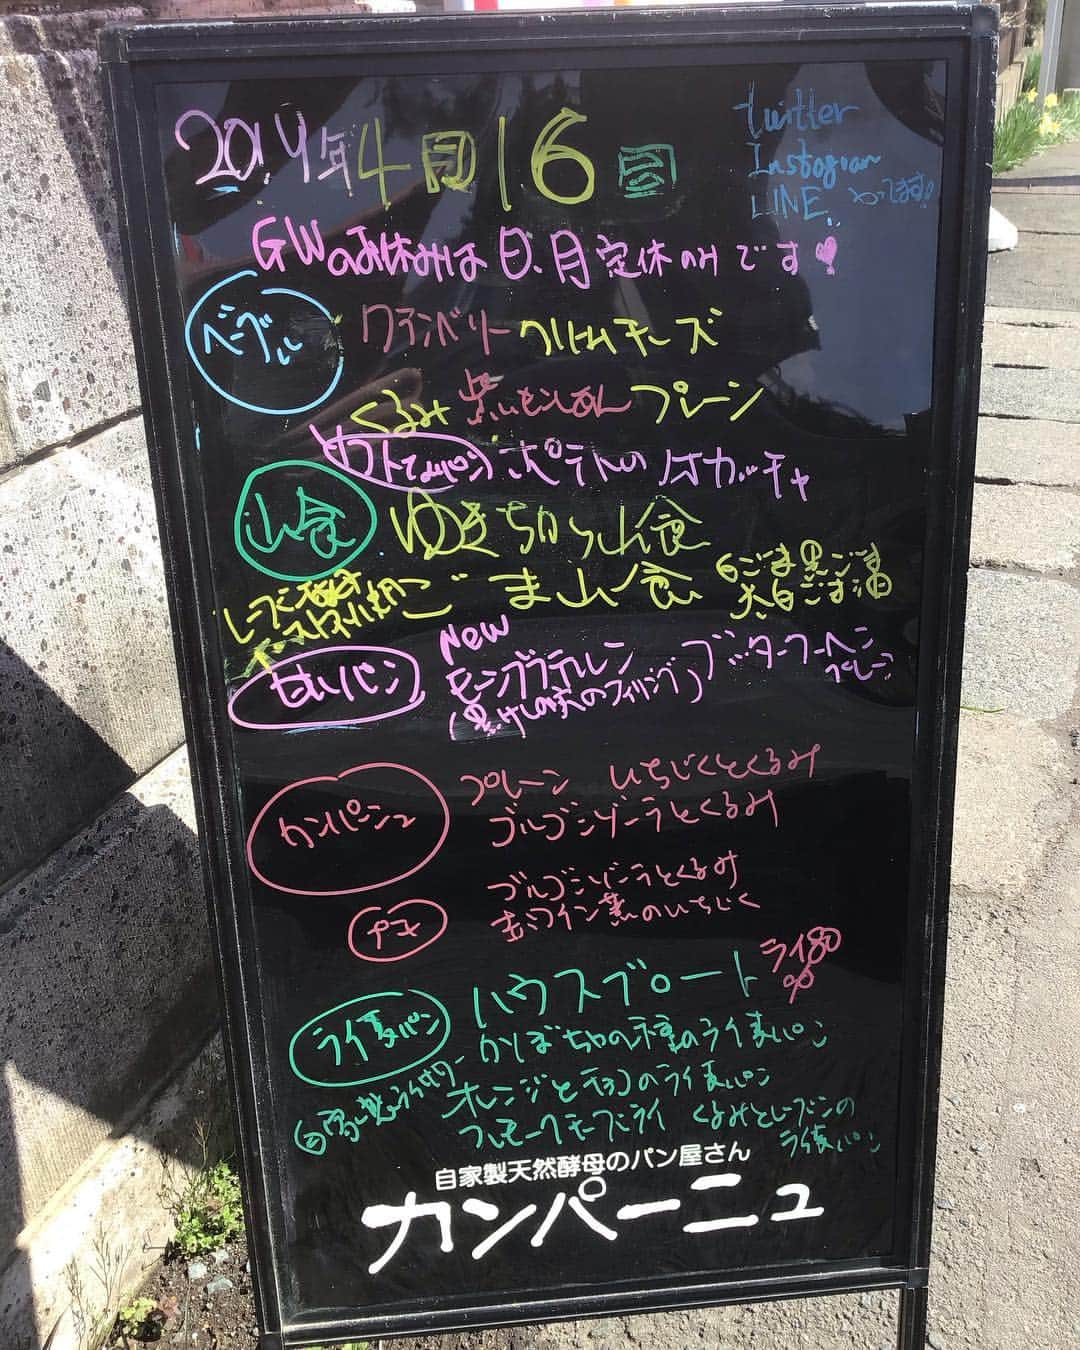 2019年4月16日
twitter
Instagram
LINE やってます!
GWのお休みは日、月定休のみです
ベーグル
クランベリークリームチーズ
くるみ 紫いもあん プレーン
ポテトのフォカッチャ
山食
ゆきちから山食
ごま山食
白ごま黒ごま
太白ごま油
甘いパン
New
(黒けしの実のフィリング)
プレーン
カンパーニュ
プレーン いちじくとくるみ
ゴルゴンゾーラとくるみ
プチ
ゴルゴンゾーラとくるみ
赤ワイン煮のいちじく
ライ麦パン
ハウスブロート
ライ80%
かぼちゃの種のライ麦パン
自家製ライサワー
オレンジとチョコのライ麦パン
くるみとレーズンの
ライ麦パン
自家製天然酵母のパン屋さん
カンパーニュ